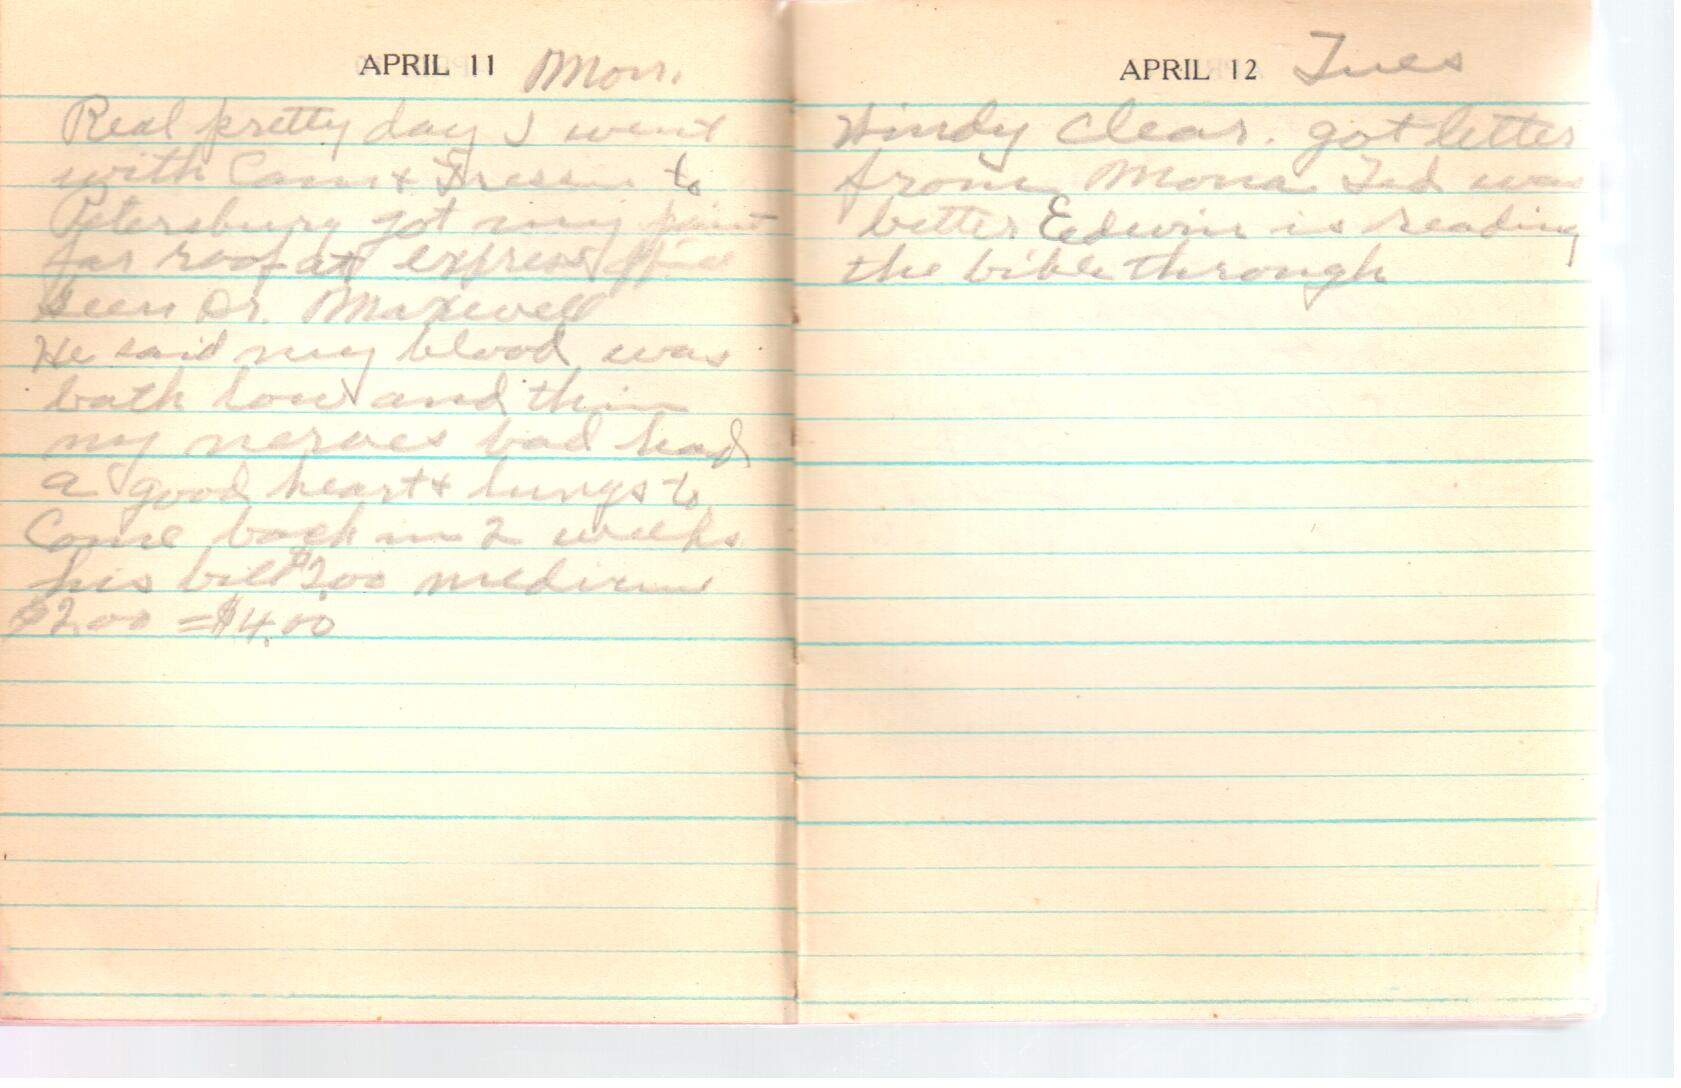 APRIL 11 Mon.
Real pretty day I went
with Cam & to
Petersburg got my paint
for roof at express office
seen Dr. Maxwell
He said my blood was
both low and thin
my nerves bad had
a good heart & lungs to
Come back in 2 weeks
his bill $2.00 medicine
$2.00 = $4.00
APRIL 12 Tues
Windy clear. got letter
from Mona Ted was
better Edwin is reading
the bible through